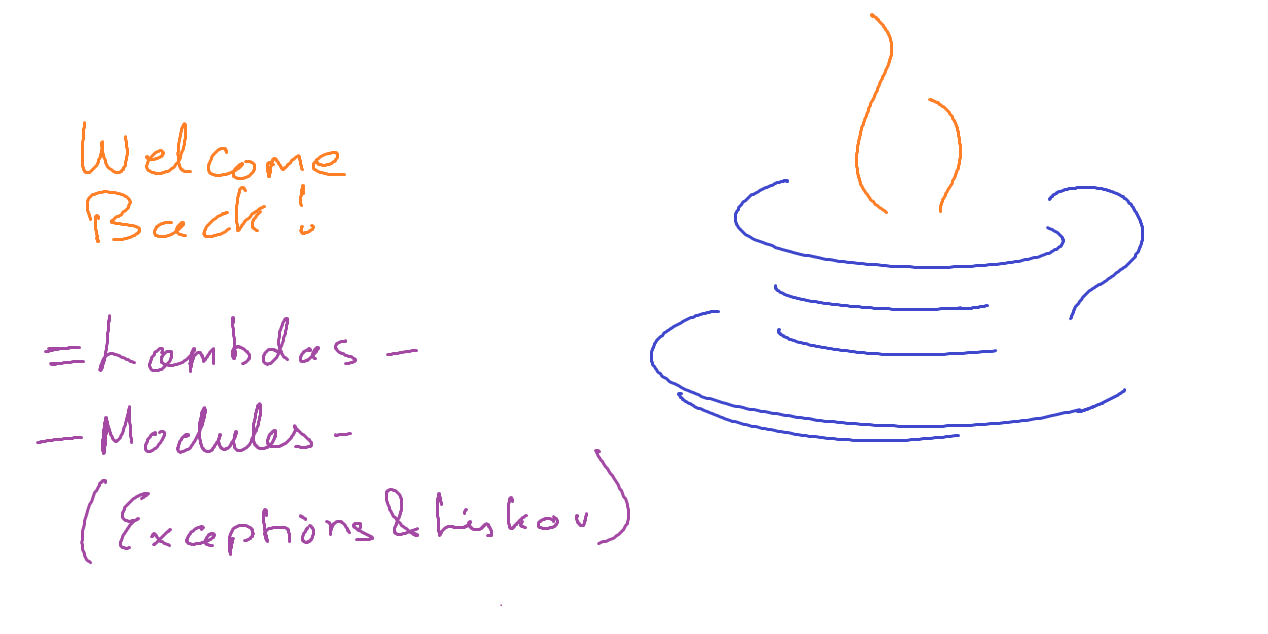 Welcome
Back!
= Lambdas -
- Modules -
(Exceptions & Liskov)